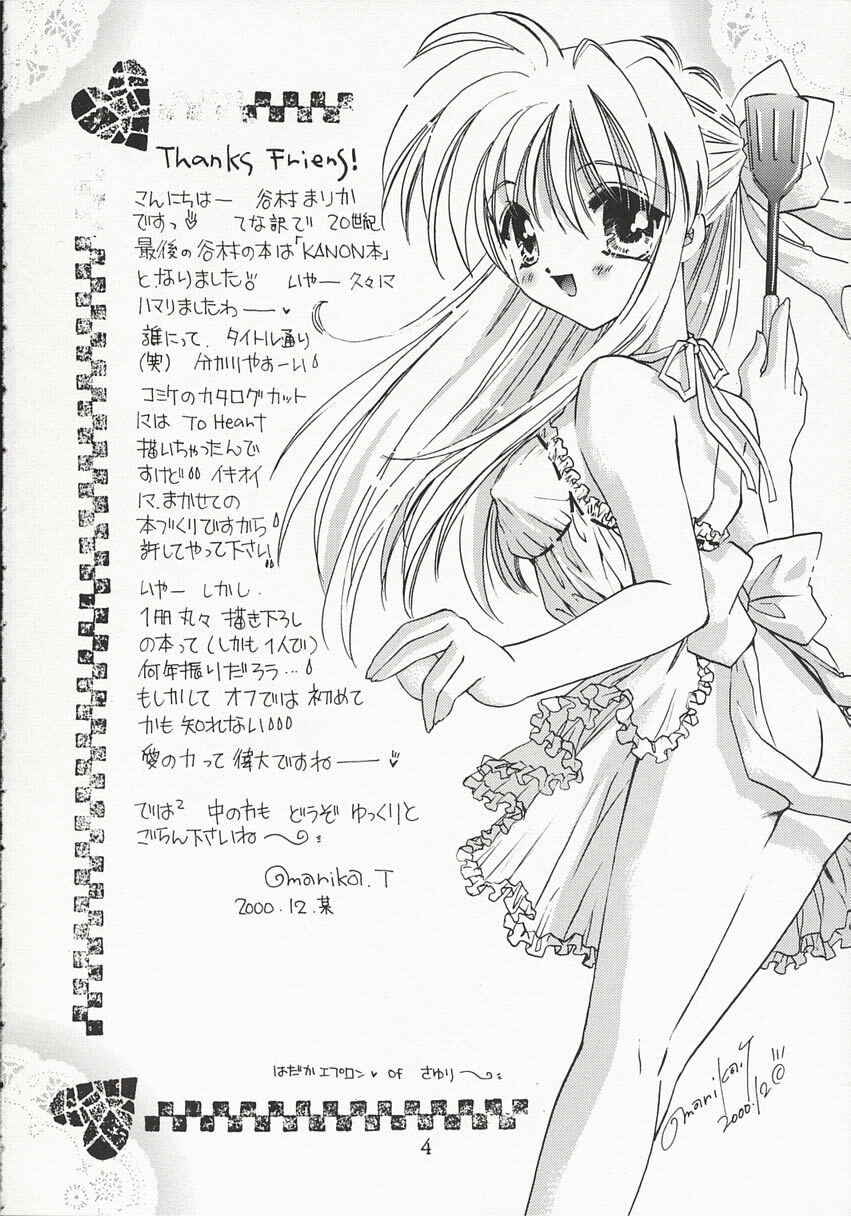 Thanks Friens!
こんにちはー 谷村まりか
ですっ てな訳で 20世紀
最後の谷村の本は「KANON本」
となりました!! いやー 久々に
ハマりましたわー
誰にって、タイトル通り
(笑) 分かりやすーい
コミケのカタログカット
には To Heart
描いちゃったんで
すけど イキオイ
に、まかせての
本づくりですから
許してやって下さい
いやー しかし、
1冊丸々 描き下ろし
の本って(しかも1人で)
何年振りだろう…
もしかして オフでは 初めて
かも 知れない
愛の力って 偉大ですねー
では² 中の方も どうぞ ゆっくりと
ごらん下さいね〜
marika.T
2000.12.某
はだかエプロン♥ of さゆり〜
marika.T
2000.12
4